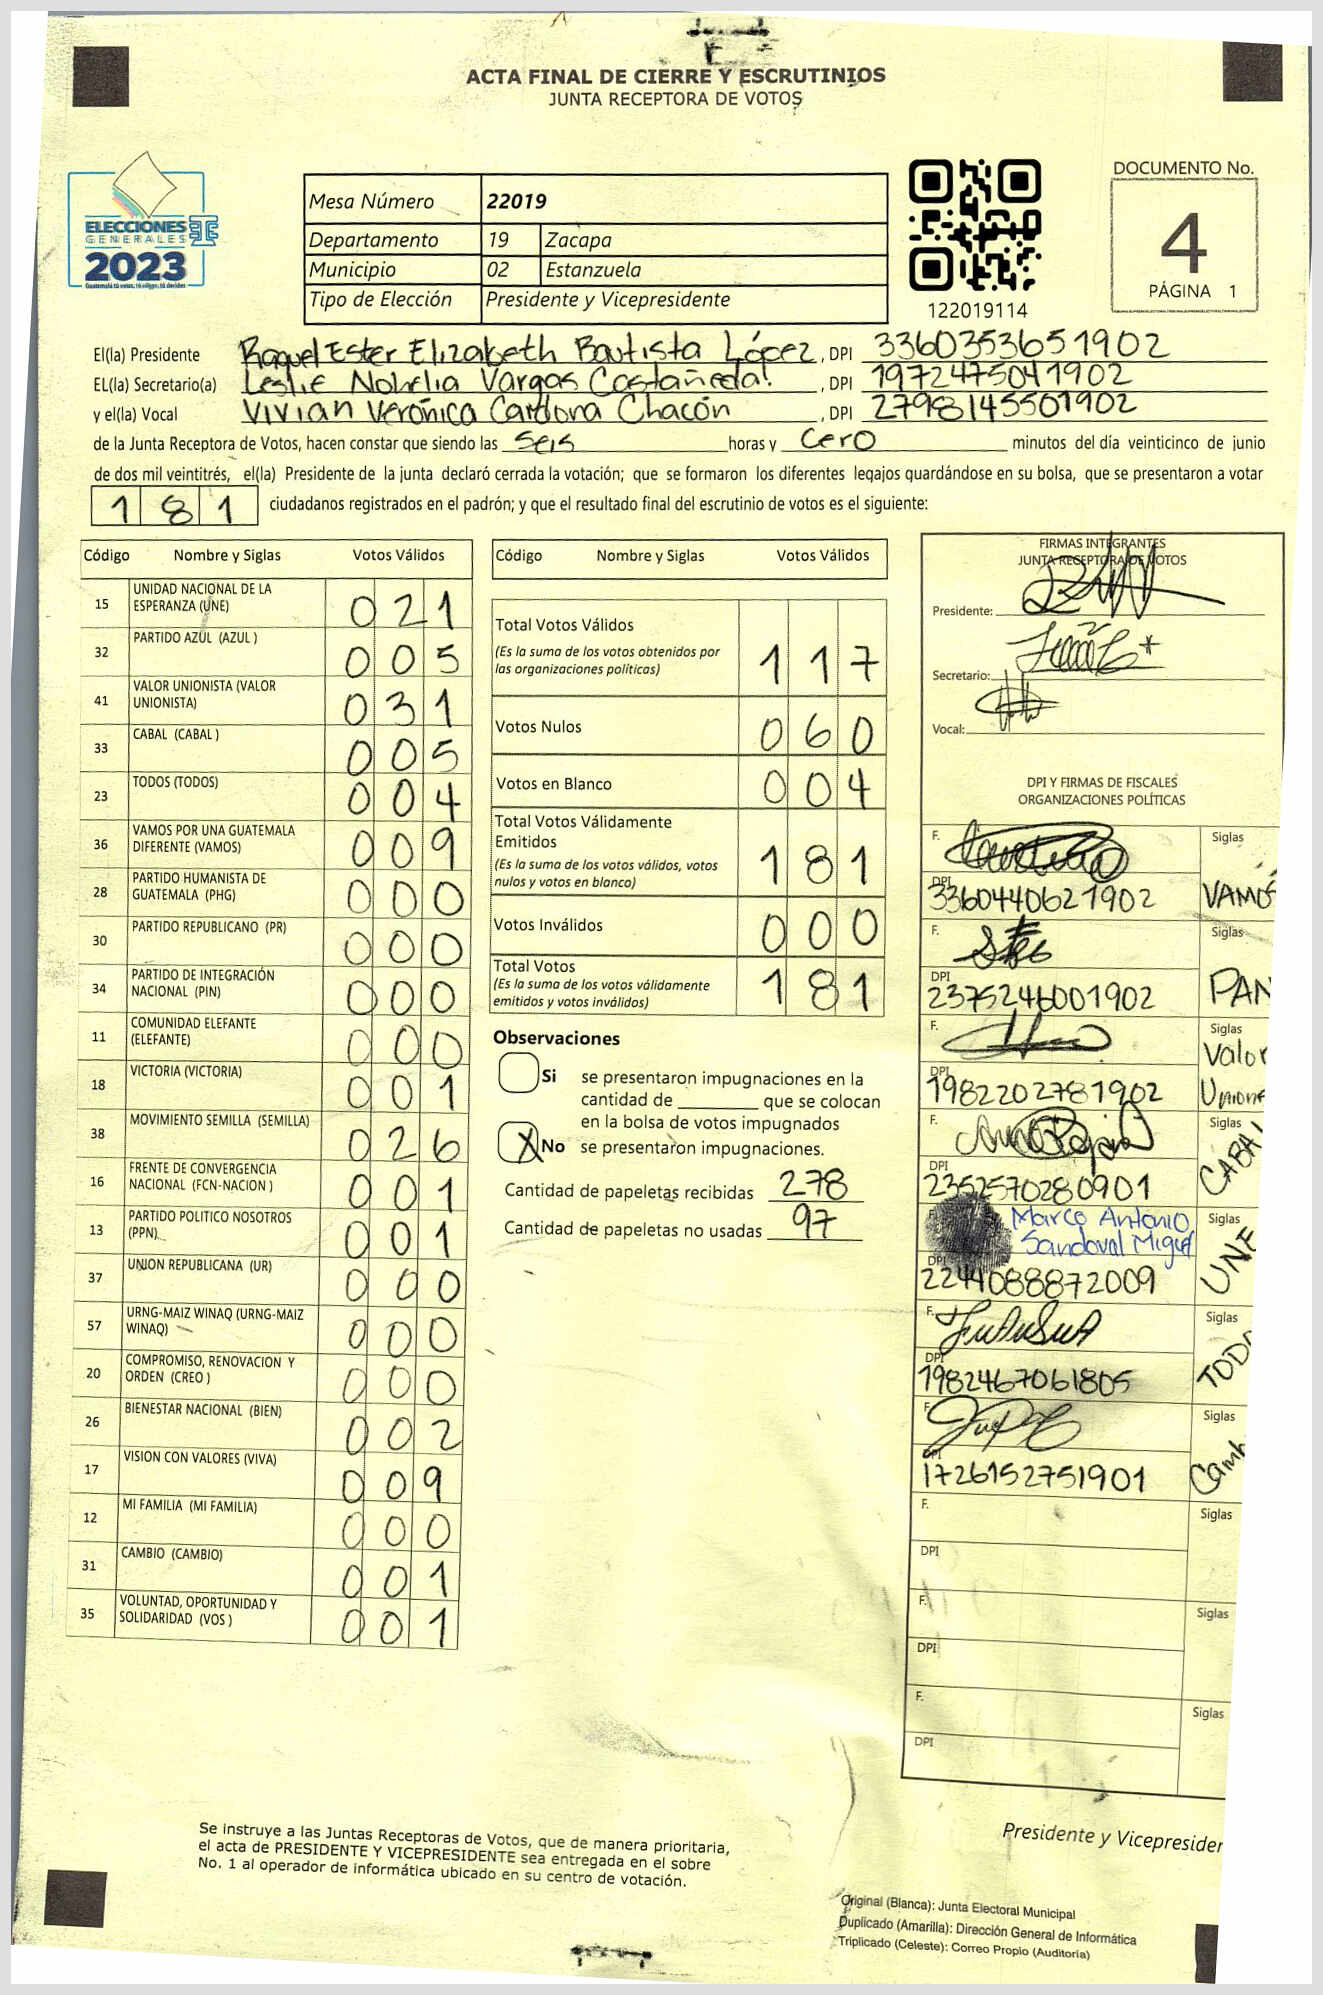 ACTA FINAL DE CIERRE Y ESCRUTINIOS
JUNTA RECEPTORA DE VOTOS
ELECCIONES
GENERALES
2023
Guatemala tú votas, tú eliges, tú decides
Mesa Número 22019
Departamento 19 Zacapa
Municipio 02 Estanzuela
Tipo de Elección Presidente y Vicepresidente
122019114
DOCUMENTO No.
4
PÁGINA 1
El(la) Presidente Raquel Ester Elizabeth Bautista López, DPI 3360353651902
EL(la) Secretario(a) Leslie Nohelia Vargas Castañeda, DPI 1972475041902
y el(la) Vocal Vivian Verónica Cardona Chacón, DPI 2798145501902
de la Junta Receptora de Votos, hacen constar que siendo las seis horas y cero minutos del día veinticinco de junio
de dos mil veintitrés, el(la) Presidente de la junta declaró cerrada la votación; que se formaron los diferentes legajos guardándose en su bolsa, que se presentaron a votar
181 ciudadanos registrados en el padrón; y que el resultado final del escrutinio de votos es el siguiente:
Código Nombre y Siglas Votos Válidos
15 UNIDAD NACIONAL DE LA ESPERANZA (UNE) 021
32 PARTIDO AZUL (AZUL ) 005
41 VALOR UNIONISTA (VALOR UNIONISTA) 031
33 CABAL (CABAL ) 005
23 TODOS (TODOS) 004
36 VAMOS POR UNA GUATEMALA DIFERENTE (VAMOS) 009
28 PARTIDO HUMANISTA DE GUATEMALA (PHG) 000
30 PARTIDO REPUBLICANO (PR) 000
34 PARTIDO DE INTEGRACIÓN NACIONAL (PIN) 000
11 COMUNIDAD ELEFANTE (ELEFANTE) 000
18 VICTORIA (VICTORIA) 001
38 MOVIMIENTO SEMILLA (SEMILLA) 026
16 FRENTE DE CONVERGENCIA NACIONAL (FCN-NACION ) 001
13 PARTIDO POLITICO NOSOTROS (PPN) 001
37 UNION REPUBLICANA (UR) 000
57 URNG-MAIZ WINAQ (URNG-MAIZ WINAQ) 000
20 COMPROMISO, RENOVACION Y ORDEN (CREO ) 000
26 BIENESTAR NACIONAL (BIEN) 002
17 VISION CON VALORES (VIVA) 009
12 MI FAMILIA (MI FAMILIA) 000
31 CAMBIO (CAMBIO) 001
35 VOLUNTAD, OPORTUNIDAD Y SOLIDARIDAD (VOS ) 001
Código Nombre y Siglas Votos Válidos
Total Votos Válidos
(Es la suma de los votos obtenidos por
las organizaciones políticas) 117
Votos Nulos 060
Votos en Blanco 004
Total Votos Válidamente
Emitidos
(Es la suma de los votos válidos, votos
nulos y votos en blanco) 181
Votos Inválidos 000
Total Votos
(Es la suma de los votos válidamente
emitidos y votos inválidos) 181
Observaciones
Si se presentaron impugnaciones en la
cantidad de ________ que se colocan
en la bolsa de votos impugnados
X No se presentaron impugnaciones.
Cantidad de papeletas recibidas 278
Cantidad de papeletas no usadas 97
FIRMAS INTEGRANTES
JUNTA RECEPTORA DE VOTOS
Presidente:
Secretario:
Vocal:
DPI Y FIRMAS DE FISCALES
ORGANIZACIONES POLÍTICAS
F. Siglas
DPI 3360440621902 VAMOS
F. Siglas
DPI 2375246001902 PAN
F. Siglas
DPI 1982202781902 Valor Unione
F. Siglas
DPI 2352570280901 CABAL
Marco Antonio Siglas
Sandoval Miguel
DPI 2244088872009 UNE
F. Siglas
DPI 1982467061805 TODO
F. Siglas
DPI 1726152751901 Camb
F. Siglas
DPI
F. Siglas
DPI
F. Siglas
DPI
Se instruye a las Juntas Receptoras de Votos, que de manera prioritaria,
el acta de PRESIDENTE Y VICEPRESIDENTE sea entregada en el sobre
No. 1 al operador de informática ubicado en su centro de votación.
Presidente y Vicepresiden
Original (Blanca): Junta Electoral Municipal
Duplicado (Amarilla): Dirección General de Informática
Triplicado (Celeste): Correo Propio (Auditoria)